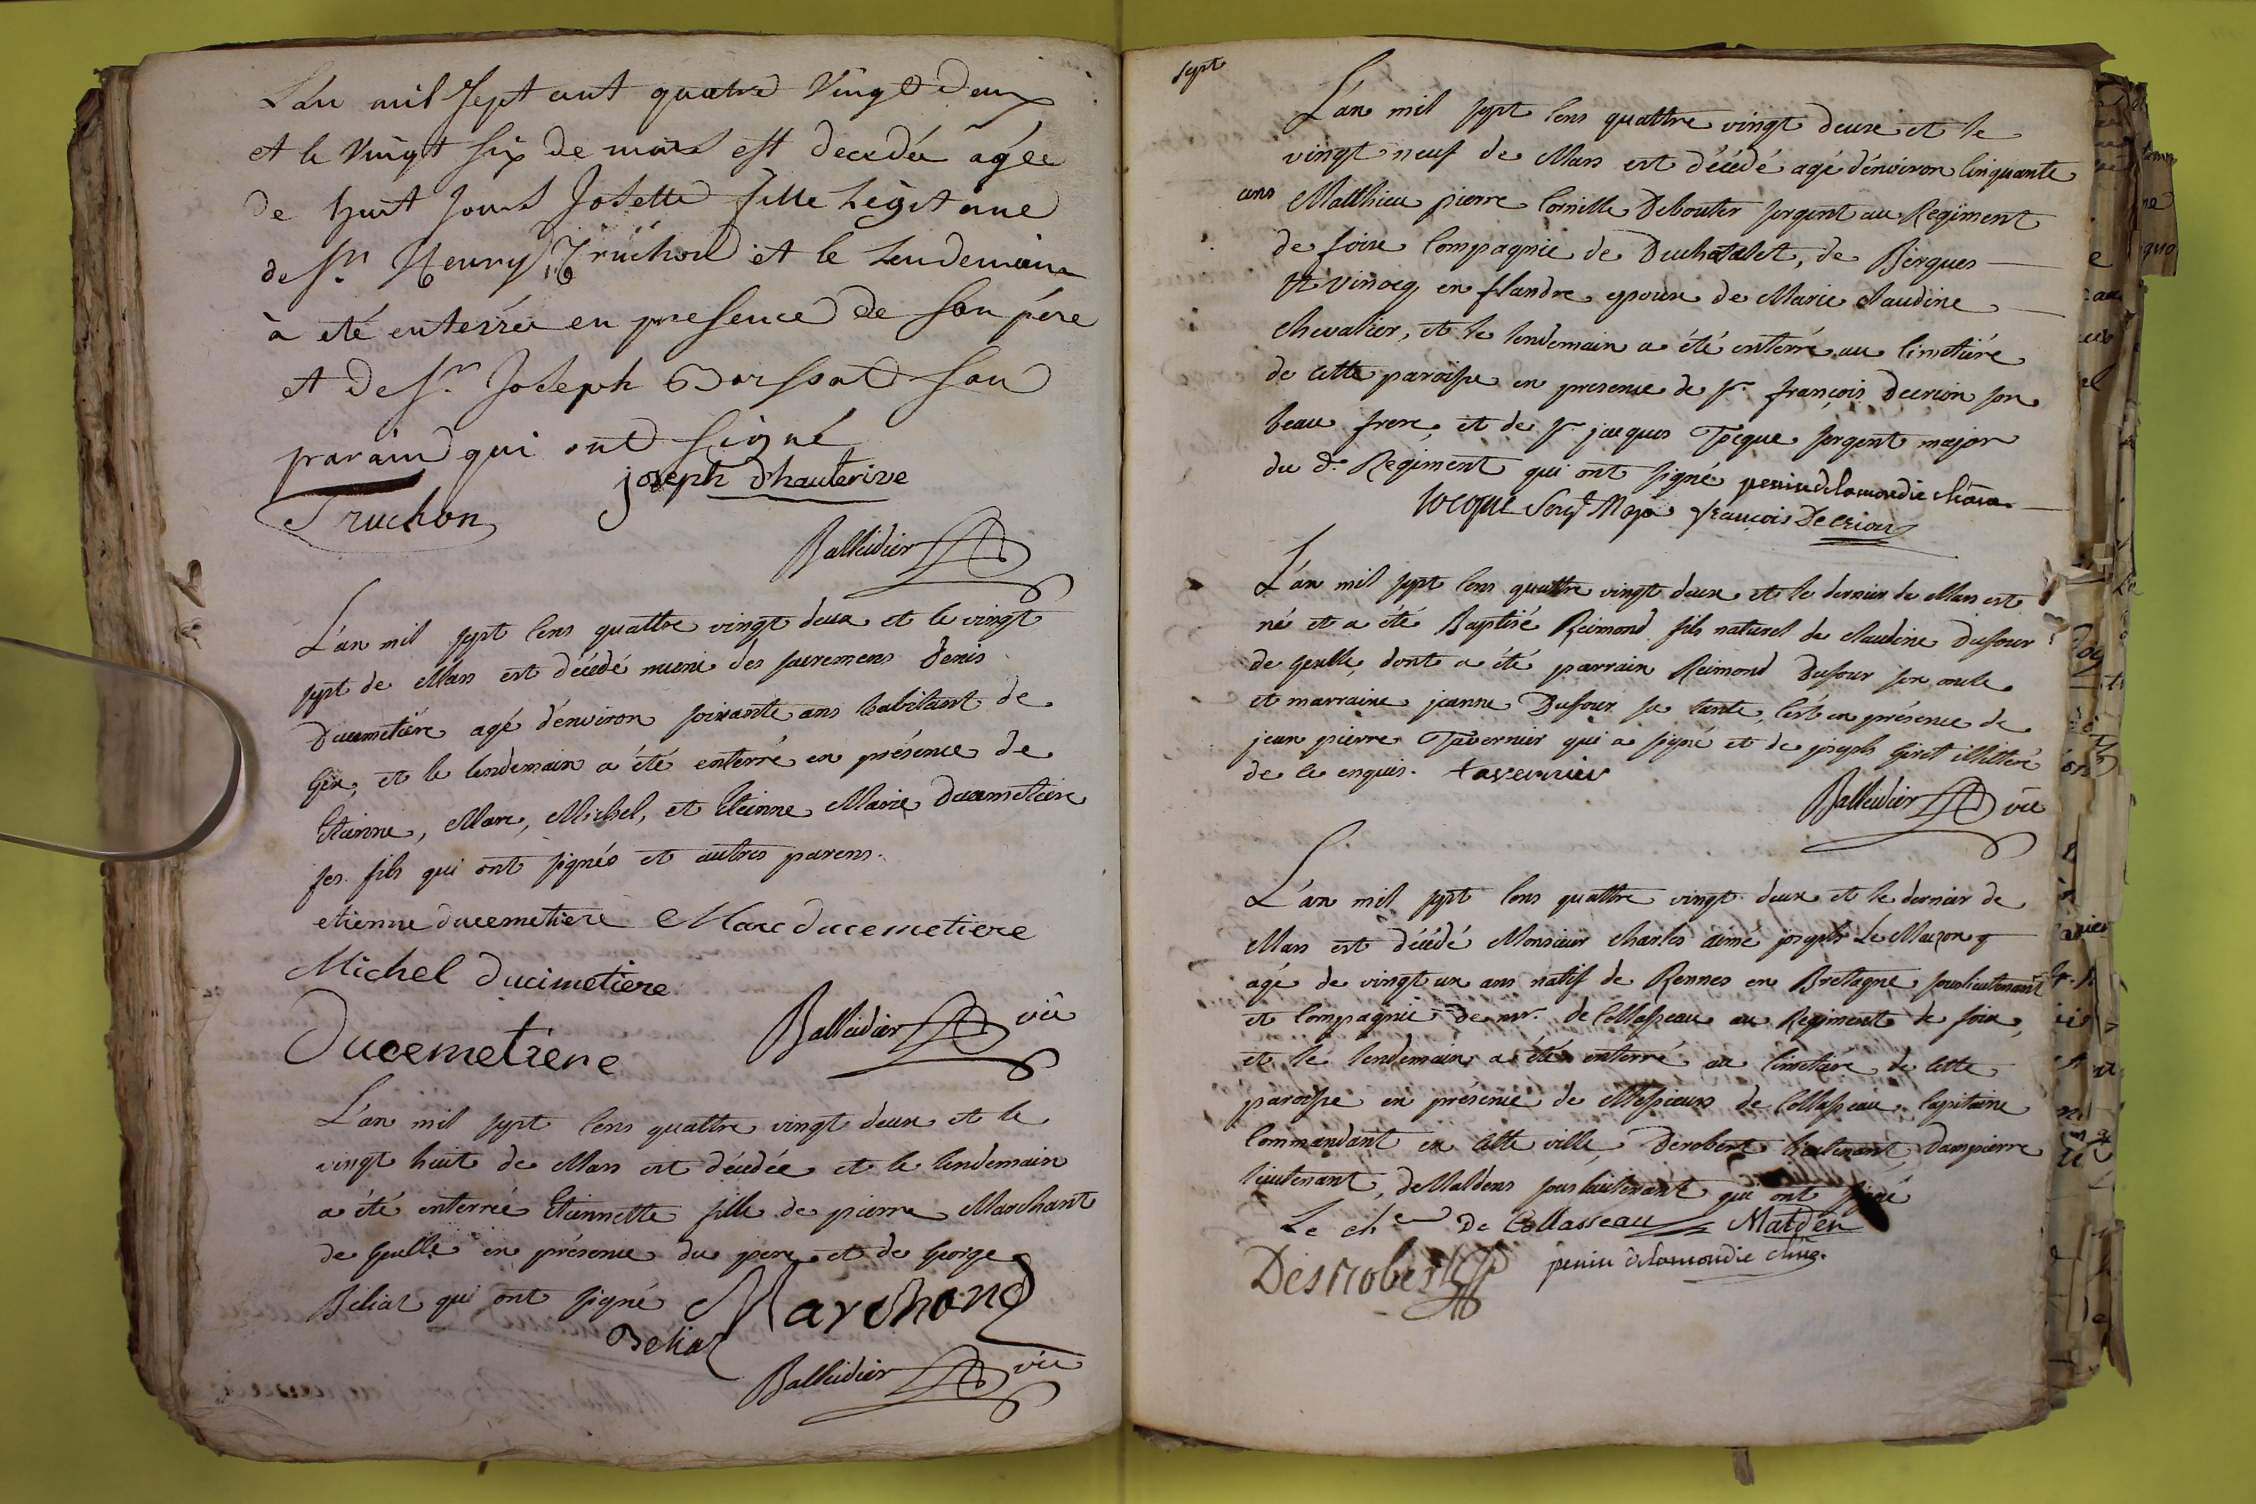 L'an mil Sept cent quatre Vingt Deux
et le Vingt six De mars est decedée agée
de huit Jours Josette fille Légitime
de Sr. Henry Truchon et le Lendemain
à eté enterrée en presence De son pére
et De Sr. Joseph son
parain qui ont signé
joseph d'hauterive
Truchon
Balleidier
L'an mil sept cens quattre vingt deux et le vingt
sept de Mars est décédé muni des sacremens Denis
Ducemetiére agé d'environ soixante ans habitant de
Gex, et le lendemain a été enterré en présence de
Etienne, Marc, Michel, et Etienne Marie Ducemetiere
ses fils qui ont signés et autres parens.
etienne ducemetiere Marc ducemetiere
Michel Ducimetiere
Ducemetiere
Balleidier vic
L'an mil sept cens quattre vingt deux et le
vingt huit de Mars est décédée et le lendemain
a été enterrée Etiennette fille de pierre Marchant
de Geulle en présence du pere et de George
Béliaz qui ont signé Marchand
Beliaz
Balleidier vic
Sept
L'an mil sept cens quattre vingt deux et le
vingt neuf de Mars est décédé agé d'environ cinquante
ans Matthieu pierre Cornille Debouter sergent au Regiment
de foix Compagnie de Duchatelet, de Bergues
St Vinocq en flandre epoux de Marie Claudine
Chevalier, et le lendemain a été enterré au Cimetiére
de cette paroisse en presence de Sr. françois Decrion son
beau frere, et de Sr. jacques Tocque sergent major
du dt. Regiment qui ont signé penin delamondie
Tocque Sergt Major françois Decrion
L'an mil sept cens quattre vingt deux et le dernier de Mars est
né et a été Baptisé Reimond fils naturel de Claudine Dufour
de Geulle, dont a été parrain Reimond Dufour son oncle
et marraine jeanne Dufour sa tante, c'est en présence de
jean pierre Tavernier qui a signé et de joseph Giret illitteré
de ce enquis. tavernier
Balleidier vic
L'an mil sept cens quattre vingt deux et le dernier de
Mars est décédé Monsieur Charles aimé joseph Le Mazon
agé de vingt un ans natif de Rennes en Bretagne souslieutenant
et Compagnie de mr. de Collasseau au Regiment de foix,
et le lendemain a été enterré au Cimetiére de cette
paroisse en présence de Messieurs de Collasseau Capitaine
Commandant en cette ville, Derobert lieutenant, Dampierre
lieutenant, deMaldens sous lieutenant qui ont signé
Le cher De Collasseau Malden
Desrobert penin delamondie